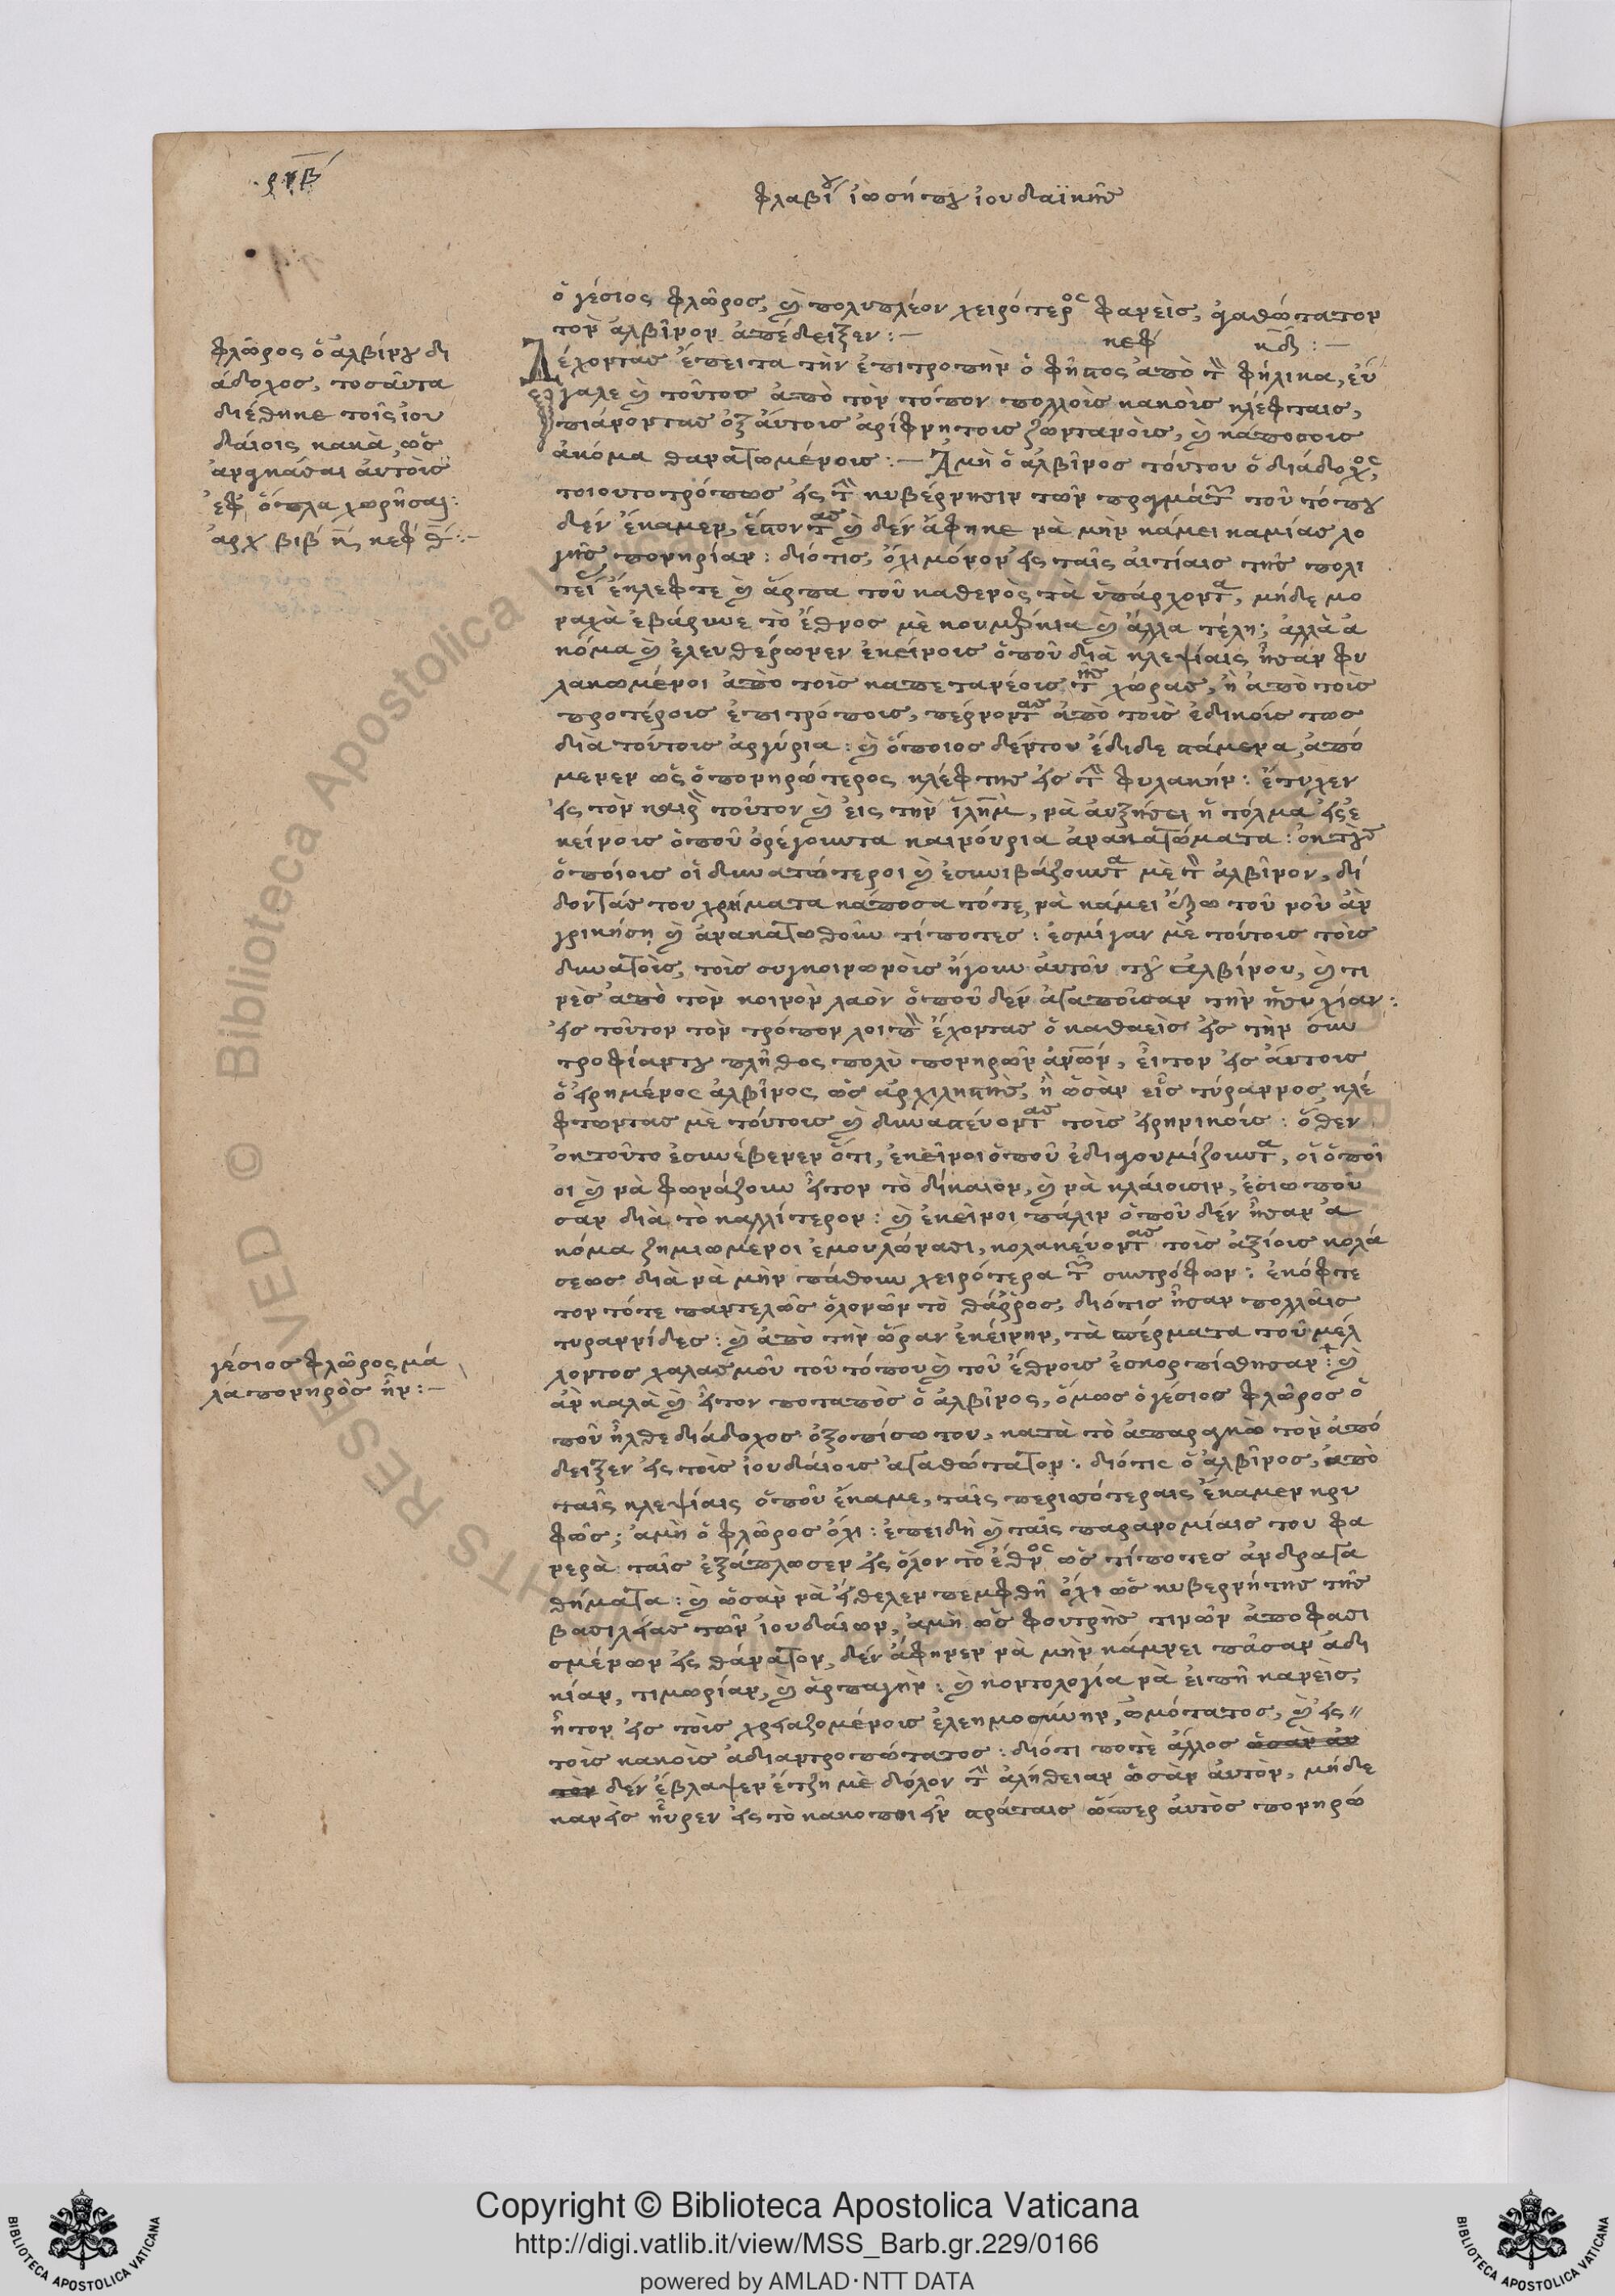 ριβ
φλαβίου ἰωσήπου ἰουδαϊκῆς
ὁ γέσιος φλῶρος, καὶ πολυπλέον χειρότερος φανεὶς, ἀγαθώτατον
τὸν ἀλβῖνον ἀπέδειξεν:—
κεφ κδ:—
Δέχοντας ἔπειτα τὴν ἐπιτροπὴν ὁ φῆστος ἀπὸ τὸν φήλικα, εὐ
γαλε καὶ τοῦτος ἀπὸ τὸν τόπον πολλοὶς κακοὶς κλέφταις,
πιάνοντας ἐξ αὐτοις ἀρίφνητοις ζωντανοὶς, καὶ κάποσοις
ἀκόμα θανατωμένοις:— Ἀμὴ ὁ ἀλβῖνος τούτου ὁ διάδοχος,
τοιουτοτρόπως εἰς τὴν κυβέρνησιν τῶν πραγμάτων τοῦ τόπου
δὲν ἔκαμεν, ἔστοντας καὶ δὲν ἄφηκε νὰ μὴν κάμει καμίας λο
γῆς πονηρίαν: διότις, ὄχι μόνον εἰς ταῖς αἰτίαις τῆς πολι
τεί ἔκλεφτε καὶ ἅρπα τοῦ καθενὸς τὰ ὑπάρχοντα, μήδε μο
ναχὰ ἐβάρυνε τὸ ἔθνος μὲ κουμέρκια καὶ ἄλλα τέλη; ἀλλὰ ἀ
κόμα καὶ ἐλευθέρωνεν ἐκείνοις ὁποῦ διὰ κλεψίαις ἦσαν φυ
λακωμένοι ἀπὸ τοὶς καπετανέοις τῆς χώρας, ἢ ἀπὸ τοὶς
προτέροις ἐπιτρόποις, πέρνοντας ἀπὸ τοὶς ἐδικοίς τως
διὰ τούτοις ἀργύρια: καὶ ὅποιος δέντου ἔδιδε στάμενα, ἀπό
μενεν ὡς ὁ πονηρώτερος κλέφτης εἰς τὴν φυλακήν: ἔτυχεν
εἰς τὸν καιρὸν τοῦτον καὶ εἰς τὴν ἱλημ, νὰ αὐξήσει ἡ τόλμα εἰς ἐ
κείνοις ὁποῦ ὀρέγουντα καινούρια ἀνακατώματα: ἐκ τοὺς
ὁποίοις οἱ δυνατώτεροι καὶ ἐσυνιβάζουντα μὲ τὸν ἀλβῖνον, δί
δοντάς του χρήματα κάποσα τότε, νὰ κάμει ἔξω τοῦ νοῦ ἀν
γρικήση καὶ ἀνακατωθοῦν τίποτες: ἐσμίγαν μὲ τούτοις τοὶς
δυνατοὶς, τοὶς συγκοινωνοὶς ἤγουν αὐτοῦ τοῦ ἀλβίνου, καὶ τι
νὲς ἀπὸ τὸν κοινὸν λαὸν ὁποῦ δὲν ἀγαποῦσαν τὴν ἡσυχίαν:
εἰς τοῦτον τὸν τρόπον λοιπὸν ἔχοντας ὁ καθαεὶς εἰς τὴν συν
τροφίαντου πλῆθος πολὺ πονηρῶν ἀνων, εἶτον εἰς αὔτοις
ὁ εἰρημένος ἀλβῖνος ὡς ἀρχιληστὴς, ἢ ὡσὰν εἷς τύραννος, κλέ
φτωντας μὲ τούτοις καὶ δυναστεύοντας τοὶς εἰρηνικοίς: ὅθεν
ἐκτοῦτο ἐσυνέβενεν ὅτι, ἐκεῖνοι ὁποῦ ἐδιαγουμίζουντα, οἱ ὁποῖ
οι καὶ νὰ φωνάζουν εἶτον τὸ δίκαιον, καὶ νὰ κλάιουσιν, ἐσιωποῦ
σαν διὰ τὸ καλλίτερον: καὶ ἐκεῖνοι πάλιν ὁποῦ δὲν ἦσαν ἀ
κόμα ζημιωμένοι ἐμουλώνασι, κολακεύοντας τοὶς ἀξίοις κολά
σεως διὰ νὰ μὴν πάθουν χειρότερα τῶν συντρόφων: ἐκόφτε
τον τότε παντελῶς ὁλονῶν τὸ θάρρος, διότις ἦσαν πολλαῖς
τυραννίδες: καὶ ἀπὸ τὴν ὥραν ἐκείνην, τὰ σπέρματα τοῦ μέλ
λοντος χαλασμοῦ τοῦ τόπου καὶ τοῦ ἔθνοις ἐσκορπίσθησαν: καὶ
ἂν καλὰ καὶ εἶτον ποταπὸς ὁ ἀλβῖνος, ὅμως ὁ γέσιος φλῶρος ὁ
ποῦ ἦλθε διάδοχος ἐξοπίσω του, κατὰ τὸ ἀπαρεγκὼ τὸν ἀπό
δειξεν εἰς τοὶς ἰουδαίοις ἀγαθώτατον: διότις ὁ ἀλβῖνος, ἀπὸ
ταῖς κλεψίαις ὁποῦ ἔκαμε, ταῖς περισσότεραις ἔκαμεν κρυ
φῶς; ἀμὴ ὁ φλῶρος ὄχι: ἐπειδὴ καὶ ταῖς παρανομίαις του φα
νερὰ ταῖς ἐξάπλωσεν εἰς ὅλον τὸ ἔθνος ὡς τίποτες ἀνδραγα
θήματα: καὶ ὡσὰν νὰ εἴθελεν πεμφθῆ ὄχι ὡς κυβερνήτης τῆς
βασιλείας τῶν ἰουδαίων, ἀμὴ ὡς φουτρὴς τινῶν ἀποφασι
σμένων εἰς θάνατον, δὲν ἄφηνεν νὰ μὴν κάμνει πᾶσαν ἀδι
κίαν, τιμωρίαν, καὶ ἁρπαγήν: καὶ κοντολογία νὰ εἰπῆ κανεὶς,
ἦτον εἰς τοὶς χρειαζομένοις ἐλεημοσύνην, ὠμότατος, καὶ εἰς
τοὶς κακοὶς ἀδιαντροπώτατος: διότι ποτὲ ἄλλος ὡσὰν αὐ
τὸν δὲν ἔβλαψεν ἔτζη μὲ διόλον τὴν ἀλήθειαν ὡσὰν αὐτὸν, μήδε
κανεὶς ηὗρεν εἰς τὸ κακοποιεῖν στράταις ὥσπερ αὐτὸς πονηρώ
φλῶρος ὁ ἀλβίνου δι
άδοχος, τοσαῦτα
διέθηκε τοῖς ἰου
δαίοις κακὰ, ὡς
ἀναγκάσαι αὐτοὶς
ἐφ ὅπλα χωρῆσαι:
ἀρχ βιβ κ, κεφ θ:—
γέσιος φλῶρος μά
λα πονηρὸς ἦν:—
Copyright © Biblioteca Apostolica Vaticana
http://digi.vatlib.it/view/MSS_Barb.gr.229/0166
powered by AMLAD·NTT DATA
BIBLIOTECA APOSTOLICA VATICANA
BIBLIOTECA APOSTOLICA VATICANA